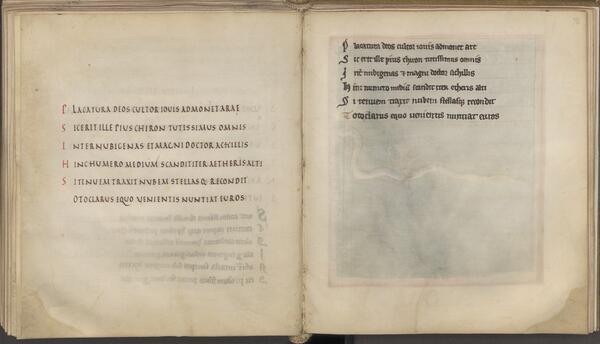 PLACATURA DEOS CULTOR IOUIS ADMONET ARAE
SIC ERIT ILLE PIUS CHIRON TUTISSIMUS OMNIS
INTER NUBIGENAS ET MAGNI DOCTOR ACHILLIS
HINC HUMERO MEDIUM SCANDIT ITER AETHERIS ALTI
SI TENUEM TRAXIT NUBEM STELLASQ; RECONDIT
OTO CLARUS EQUO UENIENTIS NUNTIAT EUROS
Placatura deos cultor iouis admonet are
Sic erit ille pius chyron tutissimus omnis
nubigenas & magni doctor achillis
medium scandit iter etheris alti
Si tenuem traxit nubem stellasq; recondit
Toto clarus equo uenientis nuntiat euros